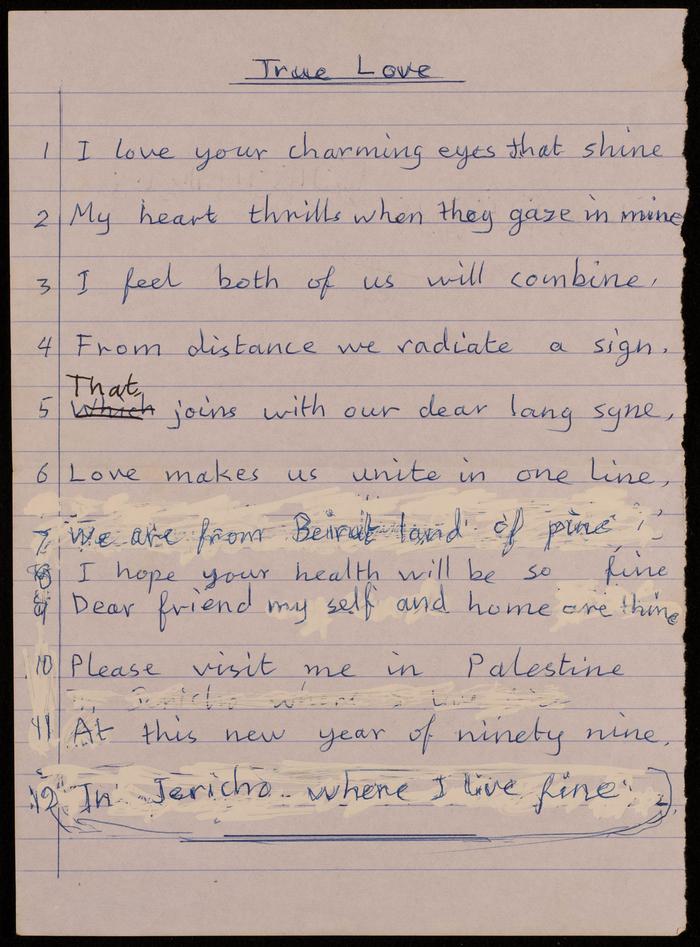 True Love
1 I love your charming eyes that shine
2 My heart thrills when they gaze in mine
3 I feel both of us will combine,
4 From distance we radiate a sign.
That,
5 Which joins with our dear lang syne,
6 Love makes us unite in one line,
7 We are from Beirut land of pine
8 I hope your health will be so fine
9 Dear friend my self and home are thine
10 Please visit me in Palestine
In Jericho where I live fine
11 At this new year of ninety nine,
12 In Jericho where I live fine